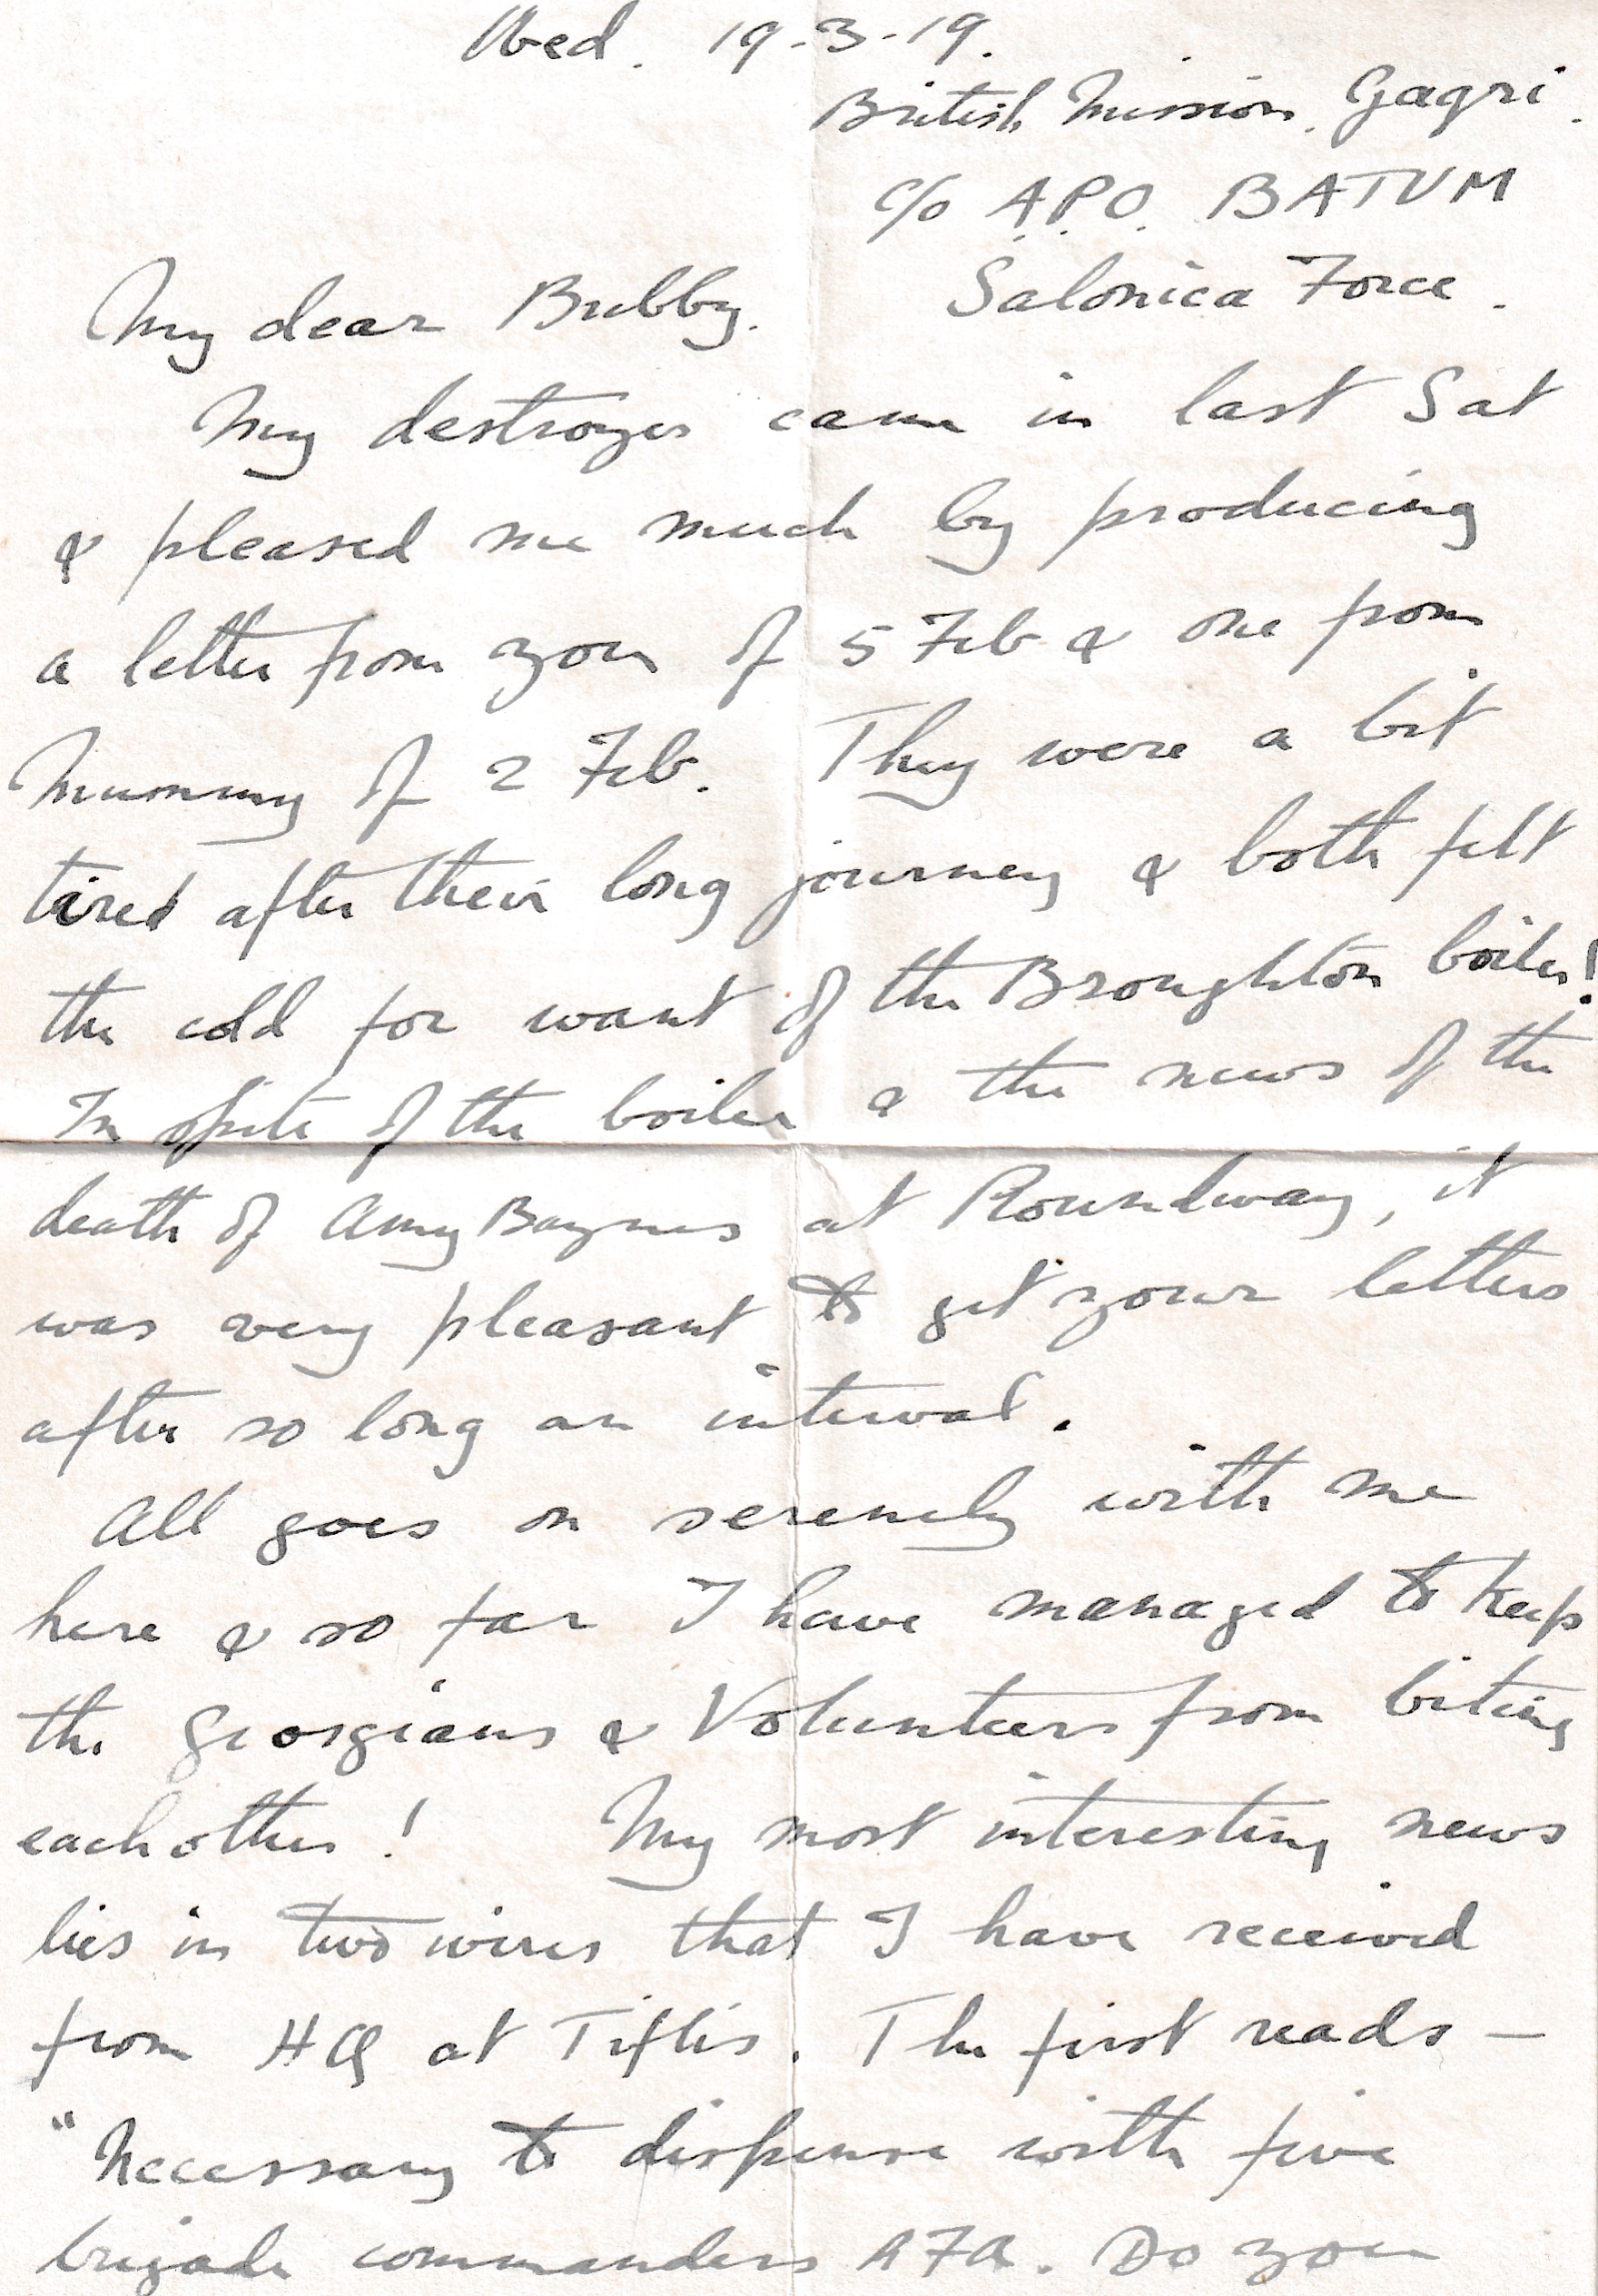 Wed. 19-3-19.
British Mission. Gagri.
c/o A.P.O. BATUM
Salonica Force.
My dear Bubby.
My destroyer came in last Sat
& pleased me much by producing
a letter from you of 5 Feb & one from
Mummy of 2 Feb. They were a bit
tired after their long journey & both felt
the cold for want of the Broughton boiler!
In spite of the boiler & the news of the
death of Amy Baynes at Roundway, it
was very pleasant to get your letters
after so long an interval.
All goes on serenely with me
here & so far I have managed to keep
the Georgians & Volunteers from biting
each other! My most interesting news
lies in two wires that I have received
from HQ at Tiflis. The first reads —
"Necessary to dispense with five
brigade commanders RFA. Do you